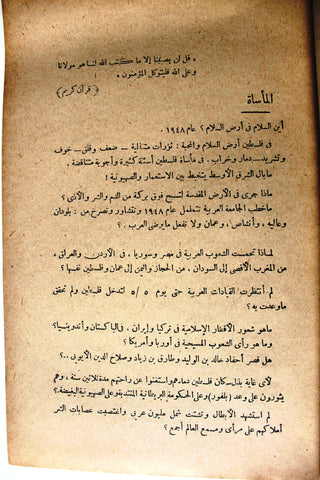 « قل لن يصيبنا إلا ما كتب الله لنا هو مولانا
وعلى الله فليتوكل المؤمنون »
( قرآن كريم )
المأساة
أين السلام في أرض السلام ؟ عام ١٩٤٨
في فلسطين أرض السلام والمحبة : ثورات متتالية - ضعف وقلق - خوف
وتشريد - دمار وخراب . في مأساة فلسطين أسئلة كثيرة وأجوبة متناقضة .
مابال الشرق الأوسط يتخبط بين الاستعمار والصهيونية !
ماذا جرى في الأرض المقدسة لتسبح فوق بركة من الدم والشر والأذى ؟
ماخطب الجامعة العربية تتململ عام ١٩٤٨ وتتشاور وتصرخ من : بلودان
وعاليه ، وأنشاص ، وعمان ولا تفعل مايرضى العرب .
لماذا تحمست الشعوب العربية في مصر وسوريا ، في الأردن والعراق ،
من المغرب الأقصى إلى السودان ، من الحجاز واليمن إلى عمان وفلسطين نفسها ؟
لم أنتظرت القيادات العربية حتى يوم ٥/٥ لتدخل فلسطين ولم تحقق
ماوعدت به ؟
ماهو شعور الأقطار الإسلامية في تركيا وإيران . في الباكستان وأندونيسيا ؟
وما هو رأى الشعوب المسيحية في أوربا وأمريكا ؟
هل قصر أحفاد خالد بن الوليد وطارق بن زياد وصلاح الدين الأيوبى .. ؟
لأى غاية بذل سكان فلسطين دماءهم واستغنوا عن راحتهم مدة ثلاثين سنة ، وهم
يثورون على وعد ( بلفور ) وعلى الحكومة البريطانية المنتدبة وعلى الصهيونية البغيضة ؟
لم استشهد الأبطال وتشتت شمل مليون عربى واغتصبت عصابات الشر
أملاكهم على مرأى ومسمع العالم أجمع ؟